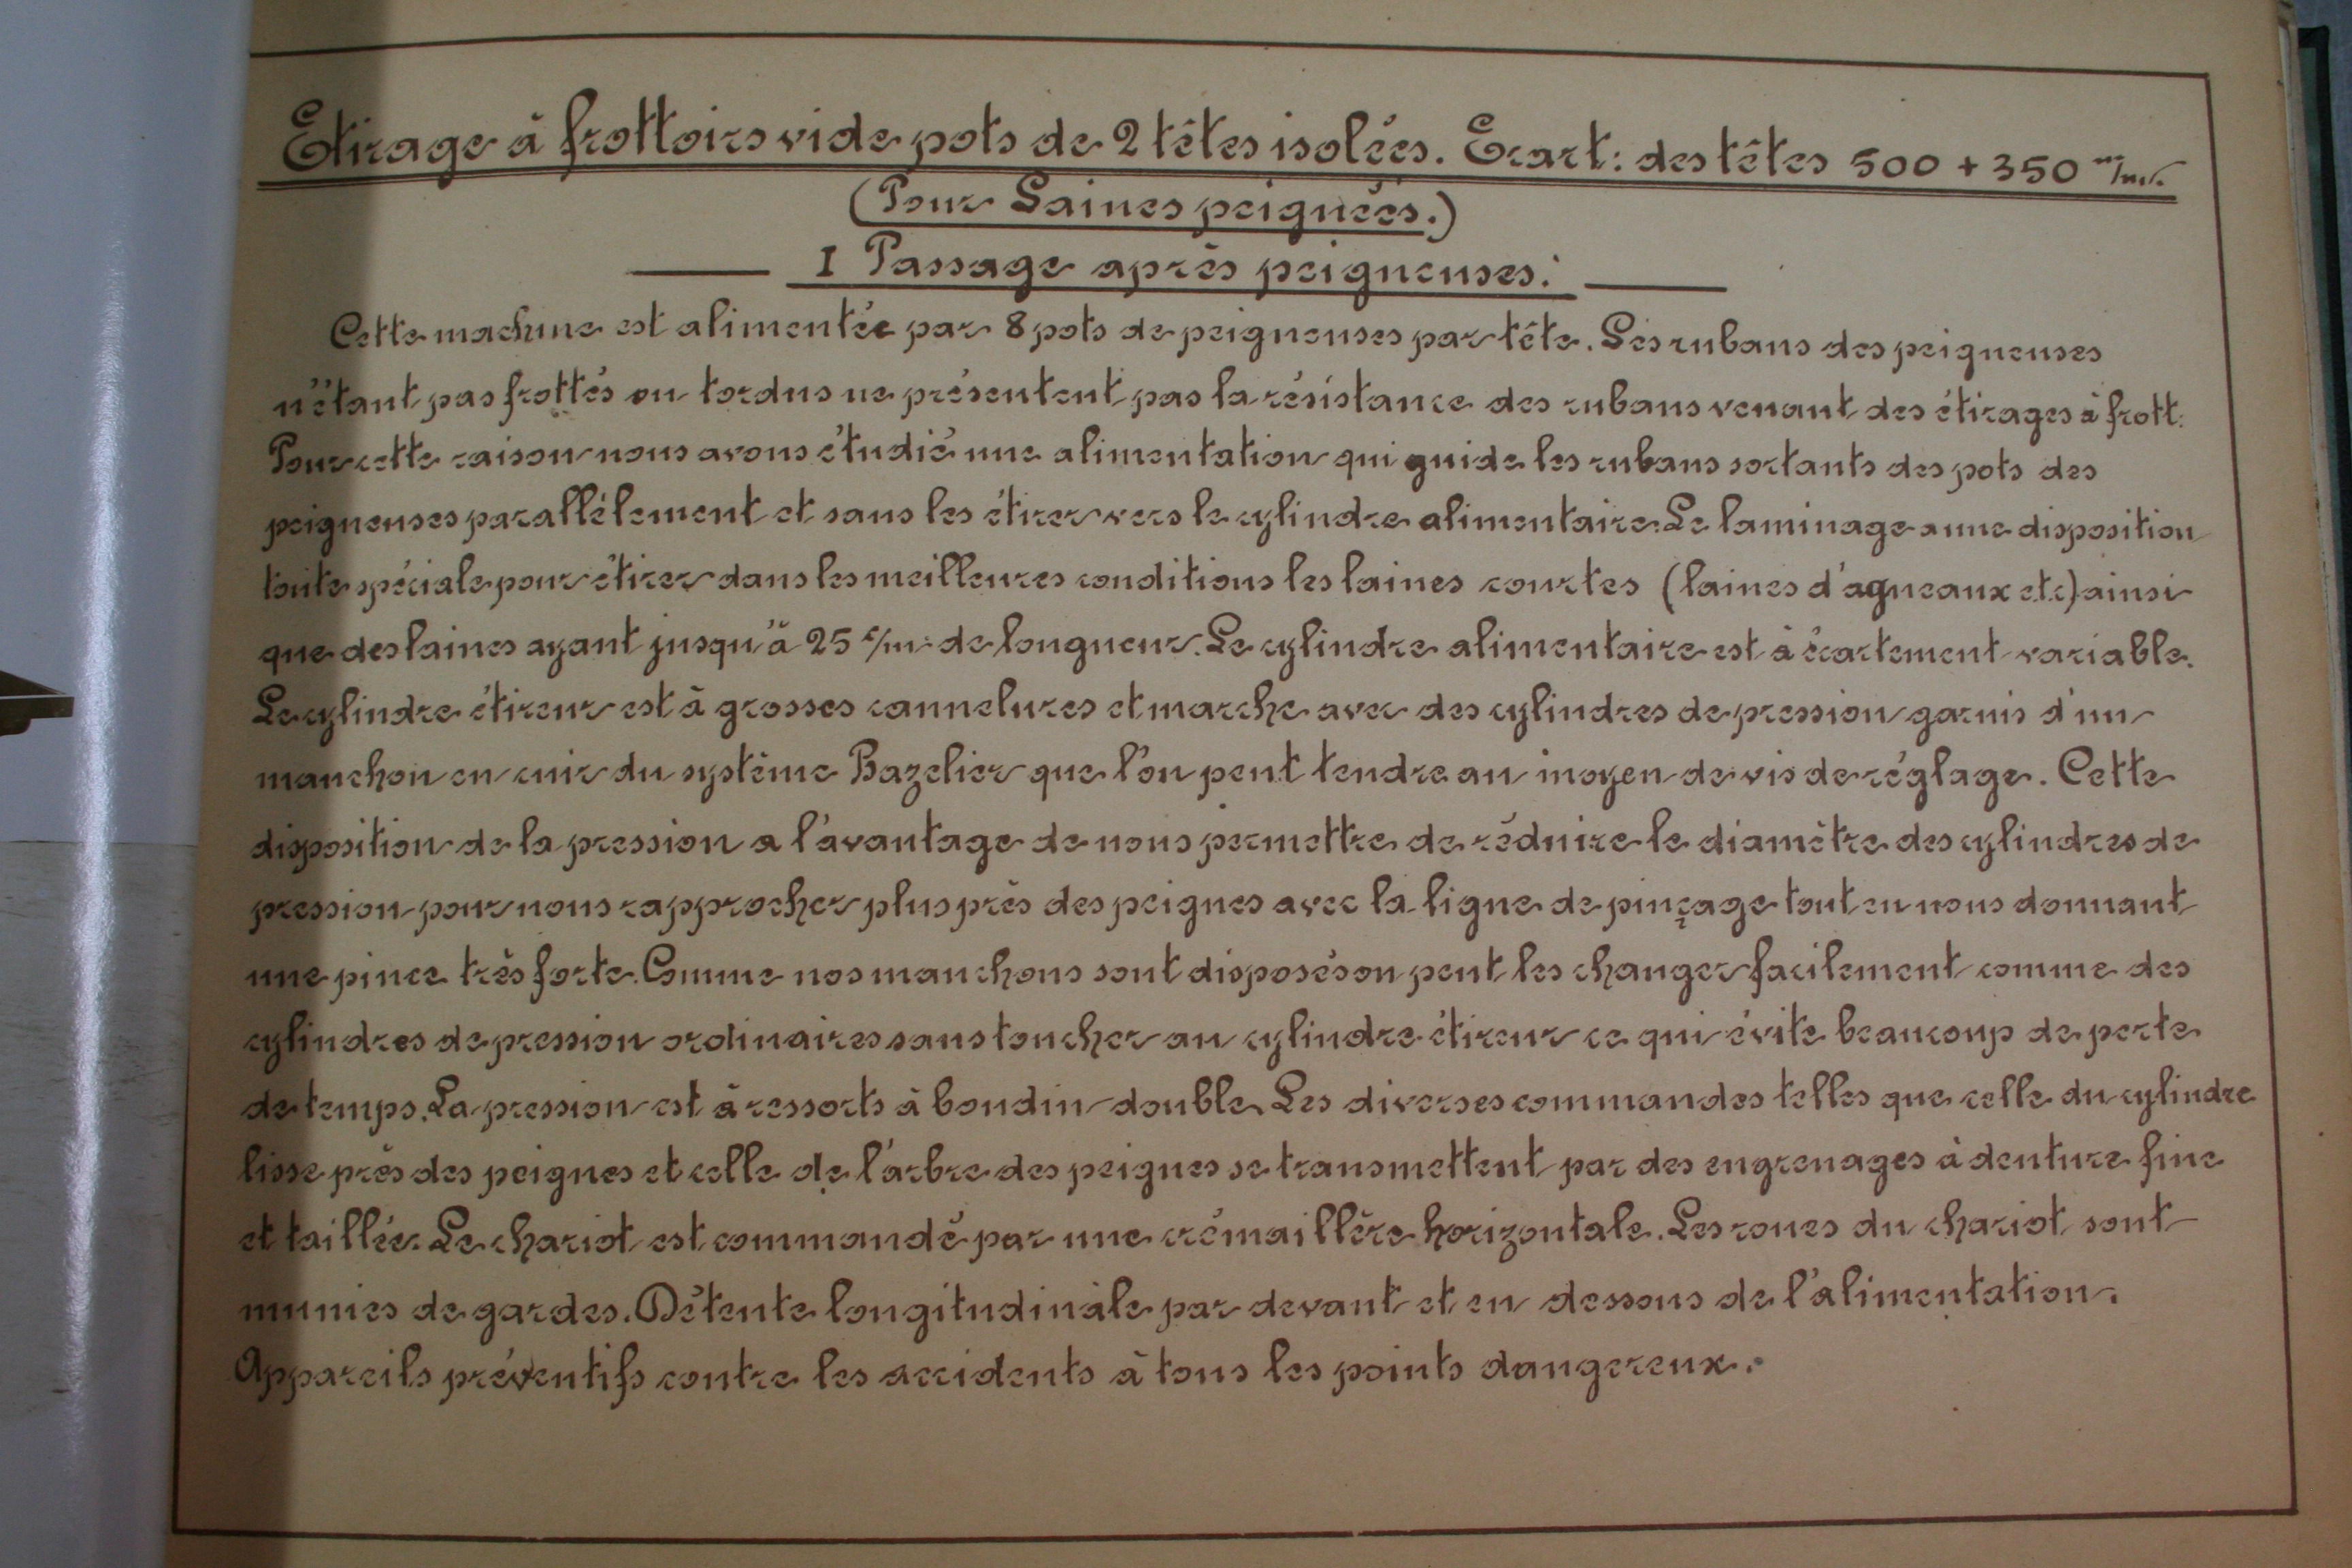 Etirage à frottoirs vide pots de 2 têtes isolées. Ecart: des têtes 500 + 350 m/m.
(Pour Laines peignées.)
I Passage après peigneuses.
Cette machine est alimentée par 8 pots de peigneuses par tête. Les rubans des peigneuses
n'étant pas frottés ou tordus ne présentent pas la résistance des rubans venant des étirages à frott:
Pour cette raison nous avons étudié une alimentation qui guide les rubans sortants des pots des
peigneuses parallèlement et sans les étirer vers le cylindre alimentaire. Le laminage a une disposition
toute spéciale pour étirer dans les meilleures conditions les laines courtes (laines d'agneaux etc) ainsi
que des laines ayant jusqu'à 25 c/m de longueur. Le cylindre alimentaire est à écartement variable.
Le cylindre étireur est à grosses cannelures et marche avec des cylindres de pression garnis d'un
manchon en cuir du système Bazelier que l'on peut tendre au moyen de vis de réglage. Cette
disposition de la pression a l'avantage de nous permettre de réduire le diamètre des cylindres de
pression pour nous rapprocher plus près des peignes avec la ligne de pinçage tout en nous donnant
une pince très forte. Comme nos manchons sont disposés on peut les changer facilement comme des
cylindres de pression ordinaires sans toucher au cylindre étireur ce qui évite beaucoup de perte
de temps. La pression est à ressorts à boudin double. Les diverses commandes telles que celle du cylindre
lisse près des peignes et celle de l'arbre des peignes se transmettent par des engrenages à denture fine
et taillée. Le chariot est commandé par une crémaillère horizontale. Les roues du chariot sont
munies de gardes. Détente longitudinale par devant et en dessous de l'alimentation.
Appareils préventifs contre les accidents à tous les points dangereux.